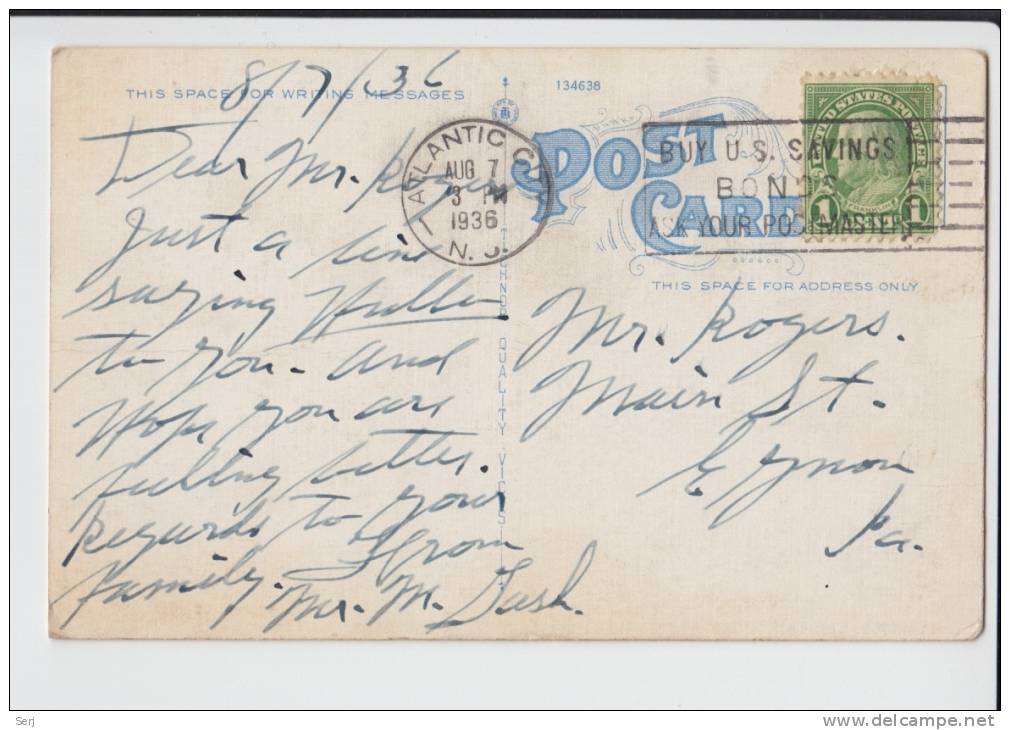 8/7/36
THIS SPACE FOR WRITING MESSAGES
134638
POST
CARD
Dear Mr. Rogers
Just a line
saying Hullo
to you - and
Hope you are
feeling better.
Regards to your
family. From
Mr. M.
ATLANTIC CITY
AUG 7
3 PM
1936
N. J.
BUY U.S. SAVINGS
BONDS
ASK YOUR POSTMASTER
UNITED STATES POSTAGE
FRANKLIN
1 1
THIS SPACE FOR ADDRESS ONLY
Mr. Rogers.
Main St.
Eynon
Pa.
QUALITY VIEWS
Serj
www.delcampe.net